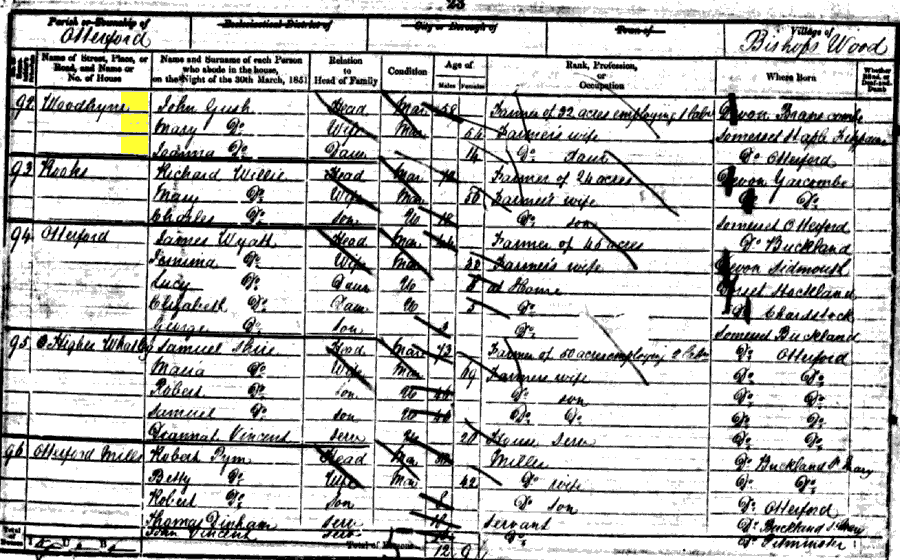 23
Parish or Township of Ecclesiastical District of City or Borough of Town of Village of
Otterford Bishops Wood
Name of Street, Place, or Road, and Name or No. of House
Name and Surname of each Person who abode in the house, on the Night of the 30th March, 1851
Relation to Head of Family
Condition
Age of
Males Females
Rank, Profession, or Occupation
Where Born
Whether Blind, or Deaf-and-Dumb
92 Woodhayne John Gush Head Mar 58 Farmer of 32 acres employing 1 Labr Devon Branscombe
Mary Do Wife Mar Farmer's wife Somerset Staple
Joanna Do Daur 14 Do Daur Do Otterford
93 Rooks Richard Willie Head Mar Farmer of 24 acres Devon Yarcombe
Mary Do Wife Mar 50 Farmer's wife Do Do
Charles Do Son Un 18 Do Son Somerset Otterford
94 Otterford James Wyatt Head Mar 44 Farmer of 45 acres Do Buckland
Jemima Do Wife Mar 30 Farmer's wife Devon Sidmouth
Lucy Do Daur Un 8 at Home Dorset Stockland
Elizabeth Do Daur Un 5 Do Do Chardstock
George Do Son Do Somerset Buckland
95 Higher Samuel Head Mar 73 Farmer of 50 acres employing 2 Labr Do Otterford
Maria Do Wife Mar 69 Farmers wife Do Do
Robert Do Son Un Do Son Do Do
Samuel Do Son Un Do Do Do Do
Vincent Serv Un 20 House Serv Do Do
96 Otterford Mills Robert Pym Head Mar Miller Do Buckland St Mary
Betty Do Wife Mar 42 Do wife Do Do
Robert Do Son 8 Do Son Do Otterford
Thomas Dinham Serv Servant Do Buckland St Mary
John Vincent Serv Do Do Pitminster
Total of Persons 12 9